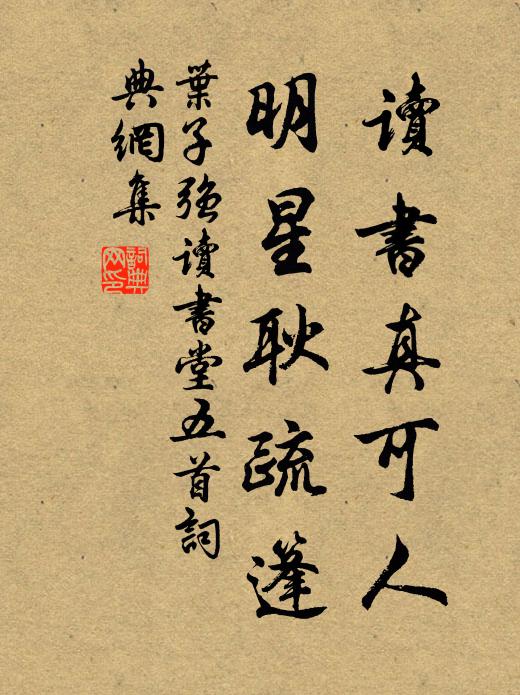 讀書真可人
明星耿疏篷
葉子强讀書堂五首詞
典網集
詞典
网印